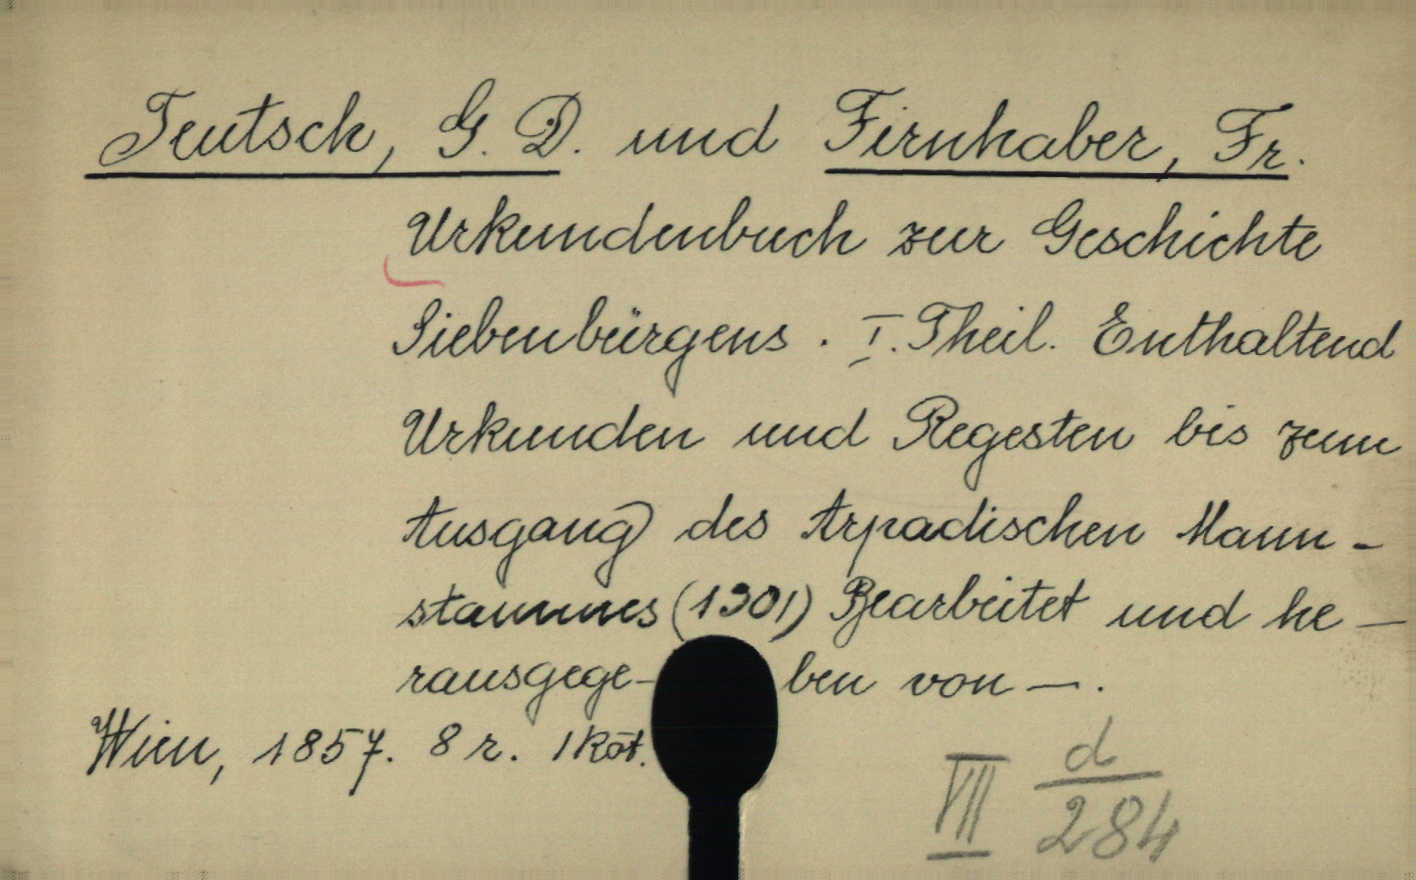 Teutsch, G. D. und Firnhaber, Fr.
Urkundenbuch zur Geschichte
Siebenbürgens. I. Theil. Enthaltend
Urkunden und Regesten bis zum
Ausgang des Arpadischen Mann-
stammes (1301) Bearbeitet und he-
rausgege- ben von —.
Wien, 1857. 8 r. 1 köt.
VII d/284